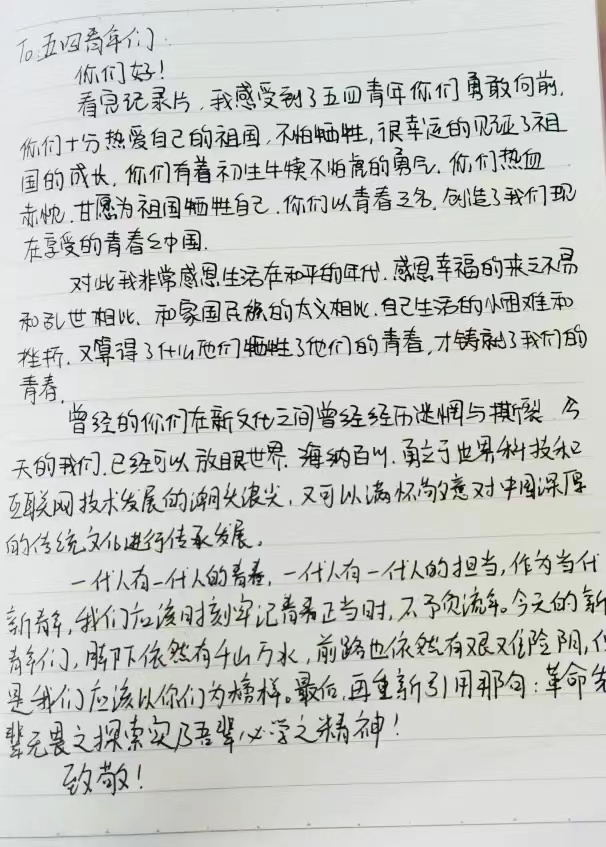 To:五四青年们:
你们好!
看完记录片,我感受到了五四青年你们勇敢向前,
你们十分热爱自己的祖国,不怕牺牲,很幸运的见证了祖
国的成长,你们有着初生牛犊不怕虎的勇气,你们热血
赤忱,甘愿为祖国牺牲自己,你们以青春之名,创造了我们现
在享受的青春之中国.
对此我非常感恩生活在和平的年代,感恩幸福的来之不易
和乱世相比,和家国民族的大义相比,自己生活的小困难和
挫折,又算得了什么他们牺牲了他们的青春,才铸就了我们的
青春.
曾经的你们在新文化之间曾经经历迷惘与撕裂,今
天的我们,已经可以放眼世界,海纳百川,勇立于世界科技和
互联网技术发展的潮头浪尖,又可以满怀敬意对中国深厚
的传统文化进行传承发展。
一代人有一代人的青春,一代人有一代人的担当,作为当代
新青年,我们应该时刻牢记青春正当时,不予负流年。今天的新
青年们,脚下依然有千山万水,前路也依然有艰又但险阴,但
是我们应该以你们为榜样。最后,再重新引用那句:革命先
辈无畏之探索实乃吾辈必学之精神!
致敬!